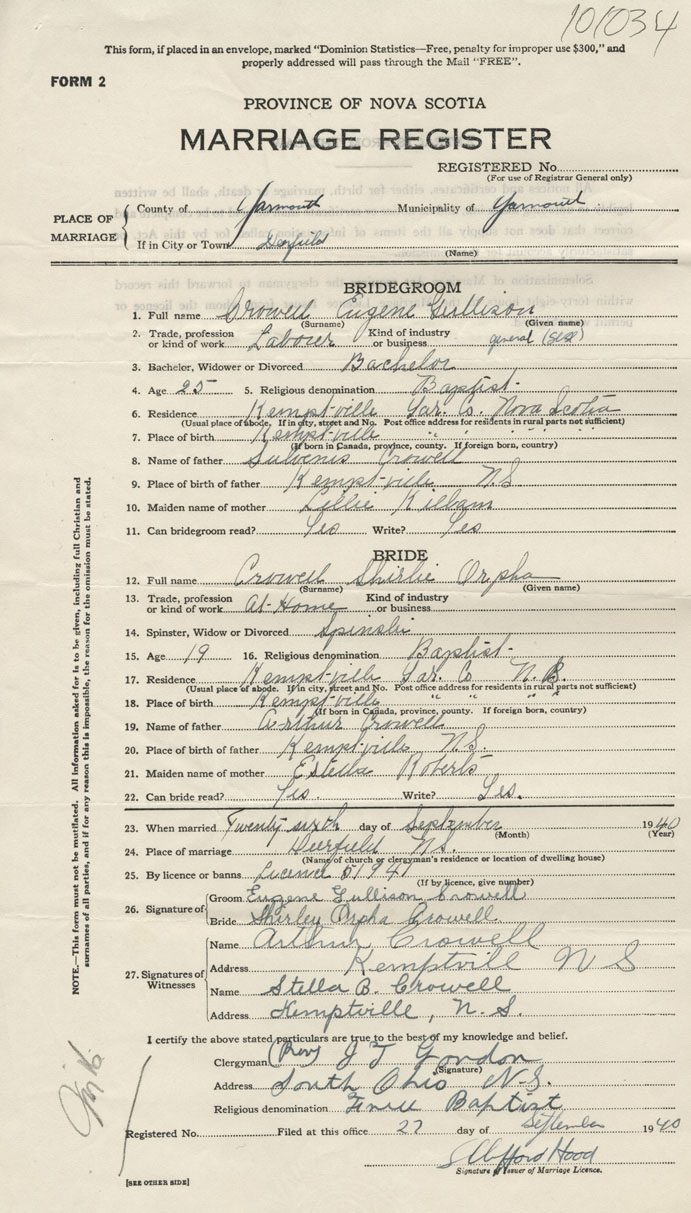 101034
This form, if placed in an envelope, marked "Dominion Statistics—Free, penalty for improper use $300," and
properly addressed will pass through the Mail "FREE".
FORM 2
PROVINCE OF NOVA SCOTIA
MARRIAGE REGISTER
REGISTERED No.
(For use of Registrar General only)
PLACE OF MARRIAGE
County of Yarmouth Municipality of Yarmouth
If in City or Town Deerfield
(Name)
BRIDEGROOM
1. Full name Crowell Eugene Gullison
(Surname) (Given name)
2. Trade, profession or kind of work Labourer Kind of industry or business general
3. Bachelor, Widower or Divorced Bachelor
4. Age 25 5. Religious denomination Baptist
6. Residence Kemptville Yar. Co. Nova Scotia
(Usual place of abode. If in city, street and No. Post office address for residents in rural parts not sufficient)
7. Place of birth Kemptville " " " "
(If born in Canada, province, county. If foreign born, country)
8. Name of father Crowell
9. Place of birth of father Kemptville N.S.
10. Maiden name of mother Lillie Killam
11. Can bridegroom read? Yes Write? Yes
BRIDE
12. Full name Crowell Shirlie Orpha
(Surname) (Given name)
13. Trade, profession or kind of work At Home Kind of industry or business
14. Spinster, Widow or Divorced
15. Age 19 16. Religious denomination Baptist
17. Residence Kemptville Yar. Co
(Usual place of abode. If in city, street and No. Post office address for residents in rural parts not sufficient)
18. Place of birth Kemptville " " "
(If born in Canada, province, county. If foreign born, country)
19. Name of father Arthur Crowell
20. Place of birth of father Kemptville N.S.
21. Maiden name of mother Estella Roberts
22. Can bride read? Yes. Write? Yes.
23. When married Twenty sixth day of September 1940
(Month) (Year)
24. Place of marriage Deerfield N.S.
(Name of church or clergyman's residence or location of dwelling house)
25. By licence or banns Licence 51941
(If by licence, give number)
26. Signature of
Groom Eugene Gullison Crowell
Bride Shirley Orpha Crowell
27. Signatures of Witnesses
Name Arthur Crowell
Address Kemptvill N S
Name Stella B. Crowell
Address Kemptville, N. S.
I certify the above stated particulars are true to the best of my knowledge and belief.
Clergyman (Rev) J T Gordon
(Signature)
Address South Ohio N.S.
Religious denomination Baptist
Registered No. Filed at this office 27 day of September 1940
Clifford Hood
Signature of Issuer of Marriage Licence.
[SEE OTHER SIDE]
NOTE.—This form must not be mutilated. All information asked for is to be given, including full Christian and
surnames of all parties, and if for any reason this is impossible, the reason for the omission must be stated.